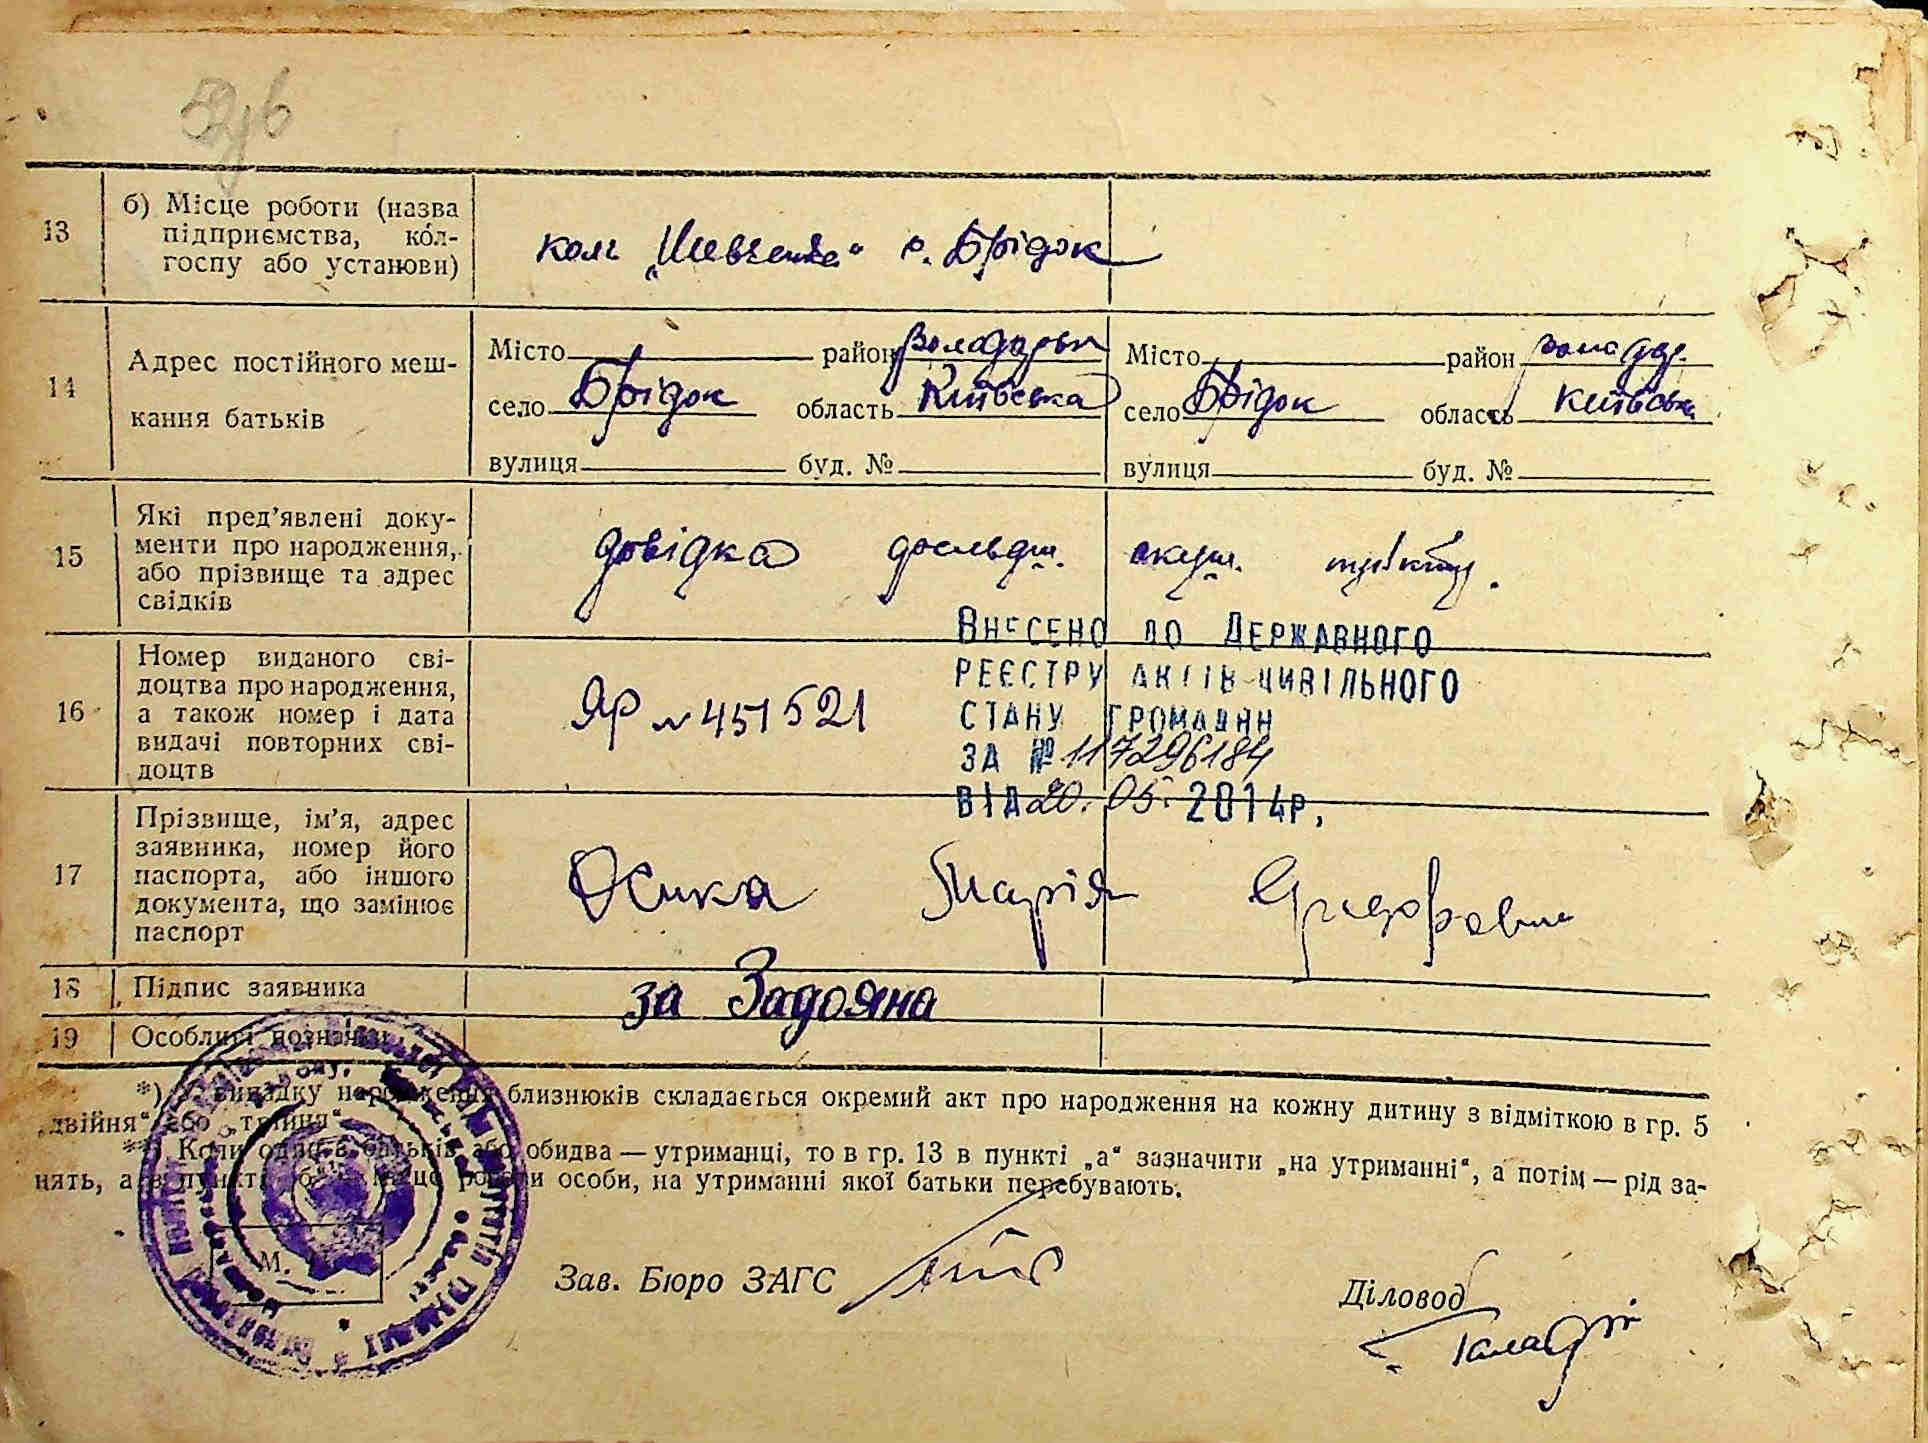 13
б) Місце роботи (назва
підприємства, кол-
госпу або установи)
кол "Шевченка" с. Брідок
14
Адрес постійного меш-
кання батьків
Місто район Володарськ
село Брідок область Київська
вулиця буд. №
Місто район Володар.
село Брідок область Київська
вулиця буд. №
15
Які пред'явлені доку-
менти про народження,
або прізвище та адрес
свідків
довідка акуш. пункту.
16
Номер виданого сві-
доцтва про народження,
а також номер і дата
видачі повторних сві-
доцтв
ЯР № 451521
Внесено до Державного
реєстру актів цивільного
стану громадян
за № 117296184
від 20.05.2014р.
17
Прізвище, ім'я, адрес
заявника, номер його
паспорта, або іншого
документа, що замінює
паспорт
Осика Марія
18
Підпис заявника
за Задояна
19
Особливі позначки
*) У випадку народження близнюків складається окремий акт про народження на кожну дитину з відміткою в гр. 5
„двійня“ або „трійня“.
**) Коли один з батьків або обидва — утриманці, то в гр. 13 в пункті „а“ зазначити „на утриманні“, а потім — рід за-
нять, а в пункті „б“ місце роботи особи, на утриманні якої батьки перебувають.
М.
Зав. Бюро ЗАГС
Діловод